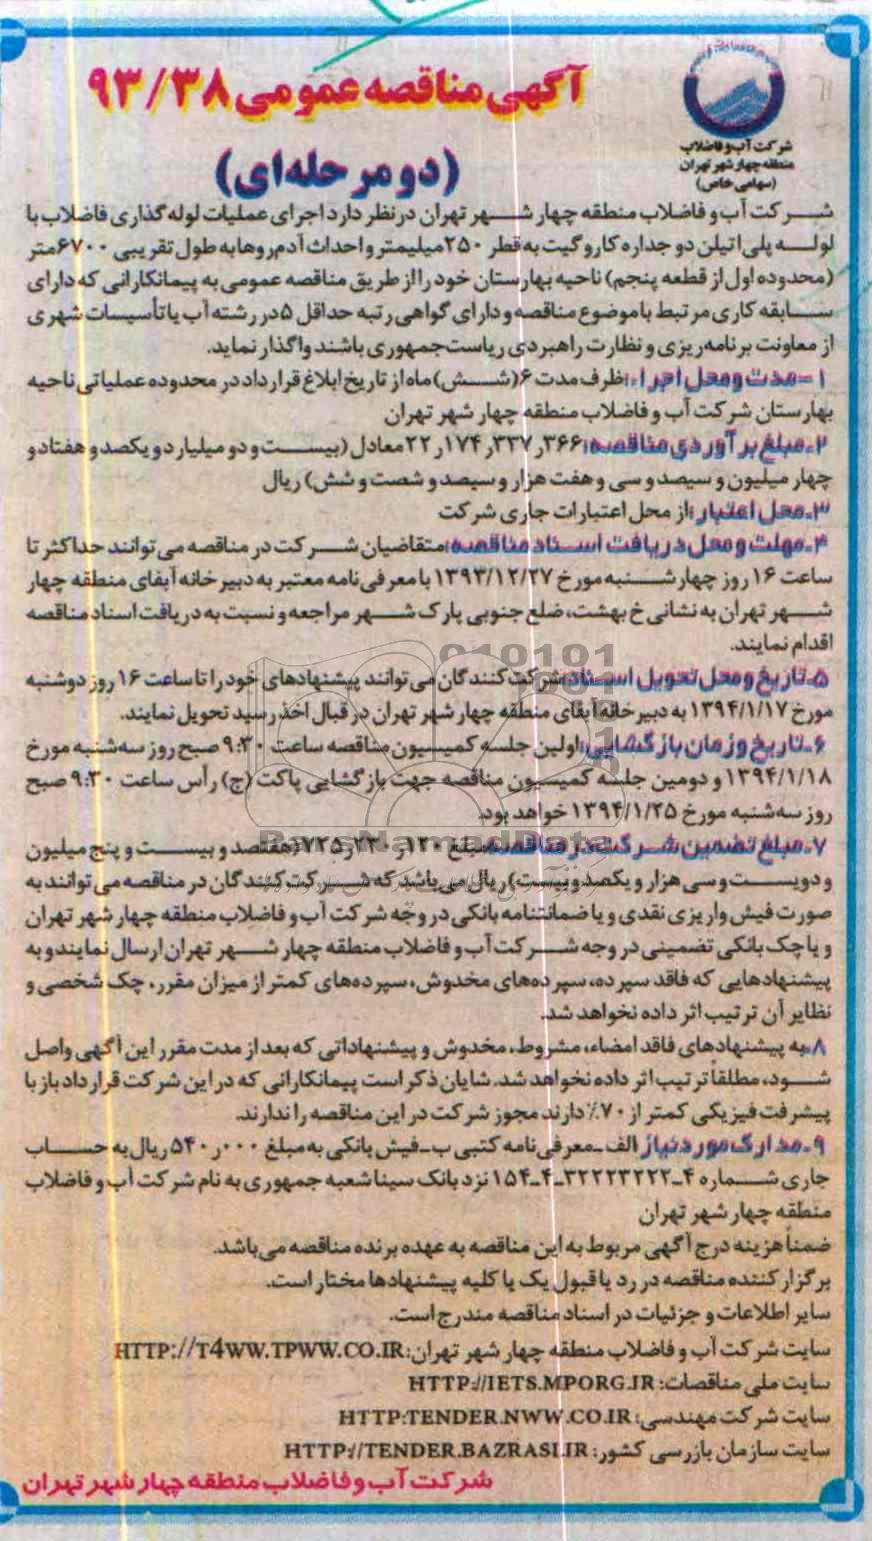 آگهی مناقصه عمومی ۹۳/۳۸
(دو مرحله‌ای)
شرکت آب و فاضلاب
منطقه چهار شهر تهران
(سهامی خاص)
شرکت آب و فاضلاب منطقه چهار شهر تهران در نظر دارد اجرای عملیات لوله گذاری فاضلاب با
لوله پلی اتیلن دو جداره کاروگیت به قطر ۲۵۰ میلیمتر و احداث آدم‌روها به طول تقریبی ۶۷۰۰ متر
(محدوده اول از قطعه پنجم) ناحیه بهارستان خود را از طریق مناقصه عمومی به پیمانکارانی که دارای
سابقه کاری مرتبط با موضوع مناقصه و دارای گواهی رتبه حداقل ۵ در رشته آب یا تأسیسات شهری
از معاونت برنامه‌ریزی و نظارت راهبردی ریاست‌جمهوری باشند واگذار نماید.
۱-مدت و محل اجرا: ظرف مدت ۶ (شش) ماه از تاریخ ابلاغ قرارداد در محدوده عملیاتی ناحیه
بهارستان شرکت آب و فاضلاب منطقه چهار شهر تهران
۲-مبلغ برآوردی مناقصه: ۲۲٫۱۷۴٫۳۳۷٫۳۶۶ معادل (بیست و دو میلیارد و یکصد و هفتاد و
چهار میلیون و سیصد و سی و هفت هزار و سیصد و شصت و شش) ریال
۳-محل اعتبار: از محل اعتبارات جاری شرکت
۴-مهلت و محل دریافت اسناد مناقصه: متقاضیان شرکت در مناقصه می‌توانند حداکثر تا
ساعت ۱۶ روز چهارشنبه مورخ ۱۳۹۳/۱۲/۲۷ با معرفی‌نامه معتبر به دبیرخانه آبفای منطقه چهار
شهر تهران به نشانی خ بهشت، ضلع جنوبی پارک شهر مراجعه و نسبت به دریافت اسناد مناقصه
اقدام نمایند.
۵-تاریخ و محل تحویل اسناد: شرکت‌کنندگان می‌توانند پیشنهادهای خود را تا ساعت ۱۶ روز دوشنبه
مورخ ۱۳۹۴/۱/۱۷ به دبیرخانه آبفای منطقه چهار شهر تهران در قبال اخذ رسید تحویل نمایند.
۶-تاریخ و زمان بازگشایی: اولین جلسه کمیسیون مناقصه ساعت ۹:۳۰ صبح روز سه‌شنبه مورخ
۱۳۹۴/۱/۱۸ و دومین جلسه کمیسیون مناقصه جهت بازگشایی پاکت (ج) رأس ساعت ۹:۳۰ صبح
روز سه‌شنبه مورخ ۱۳۹۴/۱/۲۵ خواهد بود.
۷-مبلغ تضمین شرکت در مناقصه: مبلغ ۷۲۵٫۲۳۰٫۱۲۰ (هفتصد و بیست و پنج میلیون
و دویست و سی هزار و یکصد و بیست) ریال می‌باشد که شرکت‌کنندگان در مناقصه می‌توانند به
صورت فیش واریزی نقدی و یا ضمانتنامه بانکی در وجه شرکت آب و فاضلاب منطقه چهار شهر تهران
و یا چک بانکی تضمینی در وجه شرکت آب و فاضلاب منطقه چهار شهر تهران ارسال نمایند و به
پیشنهادهایی که فاقد سپرده، سپرده‌های مخدوش، سپرده‌های کمتر از میزان مقرر، چک شخصی و
نظایر آن ترتیب اثر داده نخواهد شد.
۸-به پیشنهادهای فاقد امضاء، مشروط، مخدوش و پیشنهاداتی که بعد از مدت مقرر این آگهی واصل
شود، مطلقا ترتیب اثر داده نخواهد شد. شایان ذکر است پیمانکارانی که در این شرکت قرارداد باز با
پیشرفت فیزیکی کمتر از ۷۰٪ دارند مجوز شرکت در این مناقصه را ندارند.
۹-مدارک مورد نیاز: الف-معرفی‌نامه کتبی ب-فیش بانکی به مبلغ ۵۴۰٫۰۰۰ ریال به حساب
جاری شماره ۱۵۴-۴-۳۲۲۲۳۲۲۲-۴ نزد بانک سینا شعبه جمهوری به نام شرکت آب و فاضلاب
منطقه چهار شهر تهران
ضمناً هزینه درج آگهی مربوط به این مناقصه به عهده برنده مناقصه می‌باشد.
برگزارکننده مناقصه در رد یا قبول یک یا کلیه پیشنهادها مختار است.
سایر اطلاعات و جزئیات در اسناد مناقصه مندرج است.
سایت شرکت آب و فاضلاب منطقه چهار شهر تهران: HTTP://T4WW.TPWW.CO.IR
سایت ملی مناقصات: HTTP://IETS.MPORG.IR
سایت شرکت مهندسی: HTTP:TENDER.NWW.CO.IR
سایت سازمان بازرسی کشور: HTTP://TENDER.BAZRASI.IR
شرکت آب و فاضلاب منطقه چهار شهر تهران